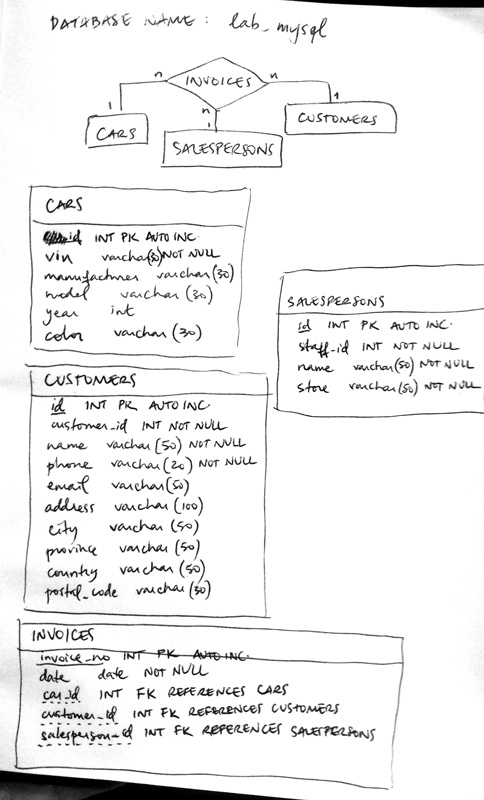 DATABASE NAME: lab_mysql
n INVOICES n
n
1 1 1
CARS SALESPERSONS CUSTOMERS
CARS
id INT PK AUTO INC.
vin varchar(30) NOT NULL
manufacturer varchar(30)
model varchar(30)
year int
color varchar(30)
SALESPERSONS
id INT PK AUTO INC.
staff_id INT NOT NULL
name varchar(50) NOT NULL
store varchar(50) NOT NULL
CUSTOMERS
id INT PK AUTO INC.
customer_id INT NOT NULL
name varchar(50) NOT NULL
phone varchar(20) NOT NULL
email varchar(50)
address varchar(100)
city varchar(50)
province varchar(50)
country varchar(50)
postal_code varchar(30)
INVOICES
invoice_no INT PK AUTO INC.
date date NOT NULL
car_id INT FK REFERENCES CARS
customer_id INT FK REFERENCES CUSTOMERS
salesperson_id INT FK REFERENCES SALESPERSONS